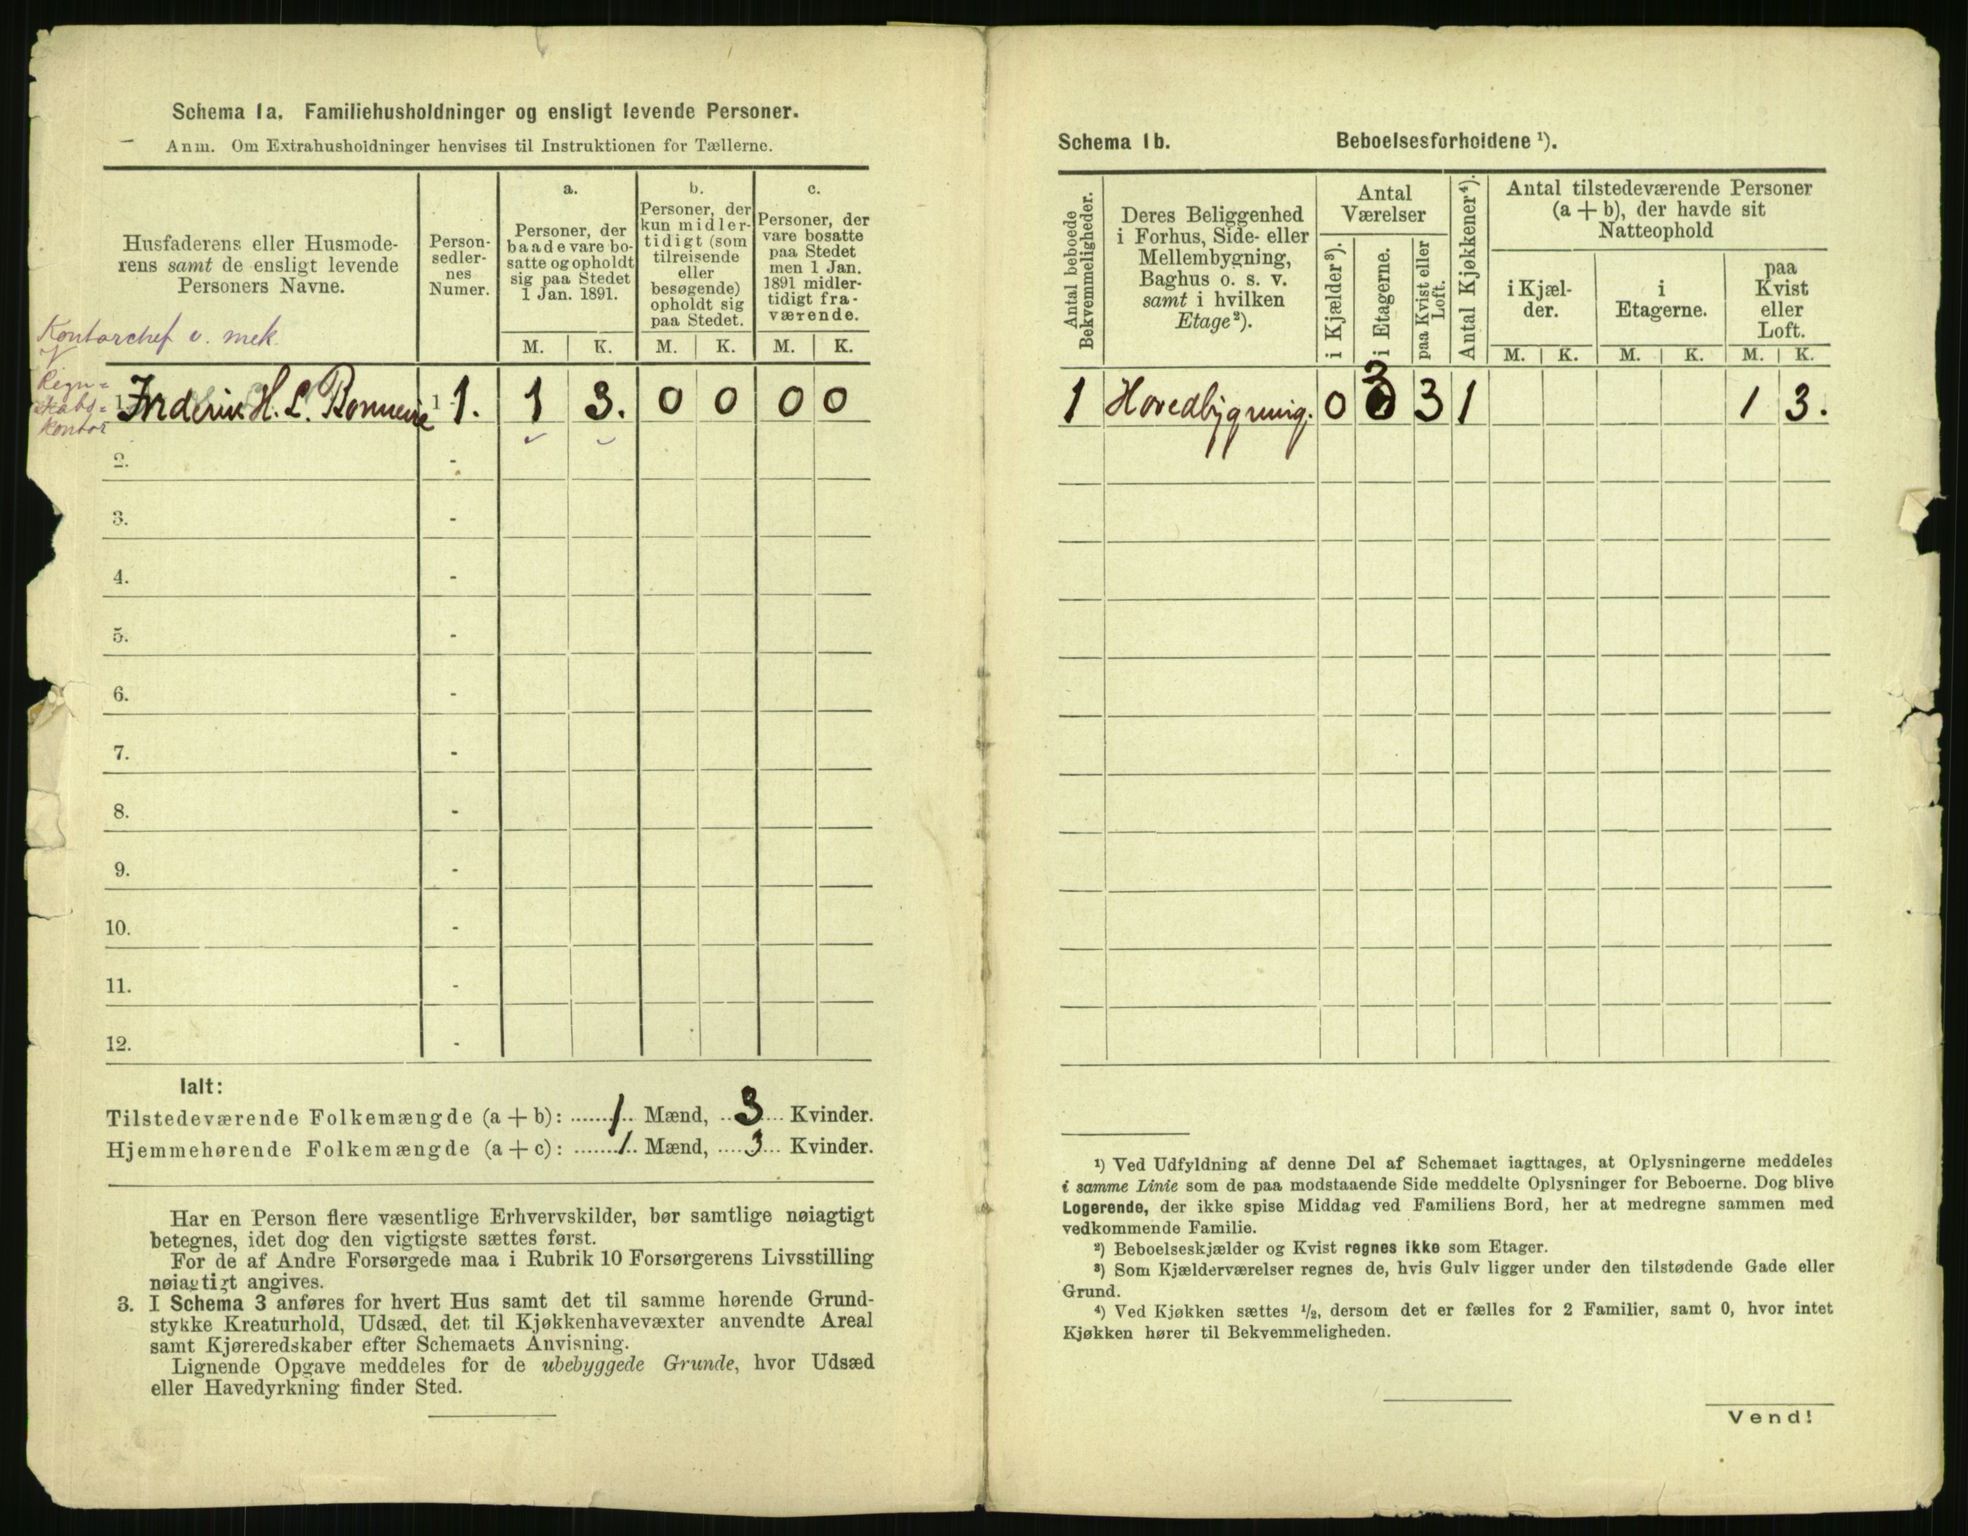 Schema 1a. Familiehusholdninger og ensligt levende Personer.
Anm. Om Extrahusholdninger henvises til Instruktionen for Tællerne.
Husfaderens eller Husmode-
rens samt de ensligt levende
Personers Navne.
Person-
sedler-
nes
Numer.
a.
Personer, der
baade vare bo-
satte og opholdt
sig paa Stedet
1 Jan. 1891.
b.
Personer, der
kun midler-
tidigt (som
tilreisende
eller
besøgende)
opholdt sig
paa Stedet.
c.
Personer, der
vare bosatte
paa Stedet
men 1 Jan.
1891 midler-
tidigt fra-
værende.
M. K. M. K. M. K.
Kontorchef v. mek.
Regn=
skabs=
kontor
1. Frederik H. L. 1 1. 1 3. 0 0 0 0
2. -
3. -
4. -
5. -
6. -
7. -
8. -
9. -
10. -
11. -
12. -
Ialt:
Tilstedeværende Folkemængde (a + b): 1 Mænd, 3 Kvinder.
Hjemmehørende Folkemængde (a + c): 1 Mænd, 3 Kvinder.
Har en Person flere væsentlige Erhvervskilder, bør samtlige nøiagtigt
betegnes, idet dog den vigtigste sættes først.
For de af Andre Forsørgede maa i Rubrik 10 Forsørgerens Livsstilling
nøiagtigt angives.
3. I Schema 3 anføres for hvert Hus samt det til samme hørende Grund-
stykke Kreaturhold, Udsæd, det til Kjøkkenhavevæxter anvendte Areal
samt Kjøreredskaber efter Schemaets Anvisning.
Lignende Opgave meddeles for de ubebyggede Grunde, hvor Udsæd
eller Havedyrkning finder Sted.
Schema 1b. Beboelsesforholdene ¹).
Antal beboede
Bekvemmeligheder.
Deres Beliggenhed
i Forhus, Side- eller
Mellembygning,
Baghus o. s. v.
samt i hvilken
Etage²).
Antal
Værelser
i Kjælder³).
i Etagerne.
paa Kvist eller
Loft.
Antal Kjøkkener⁴).
Antal tilstedeværende Personer
(a + b), der havde sit
Natteophold
i Kjæl-
der.
i
Etagerne.
paa
Kvist
eller
Loft.
M. K. M. K. M. K.
1 Hovedbygning. 0 3 3 1 1 3.
¹) Ved Udfyldning af denne Del af Schemaet iagttages, at Oplysningerne meddeles
i samme Linie som de paa modstaaende Side meddelte Oplysninger for Beboerne. Dog blive
Logerende, der ikke spise Middag ved Familiens Bord, her at medregne sammen med
vedkommende Familie.
²) Beboelseskjælder og Kvist regnes ikke som Etager.
³) Som Kjælderværelser regnes de, hvis Gulv ligger under den tilstødende Gade eller
Grund.
⁴) Ved Kjøkken sættes ½, dersom det er fælles for 2 Familier, samt 0, hvor intet
Kjøkken hører til Bekvemmeligheden.
Vend!